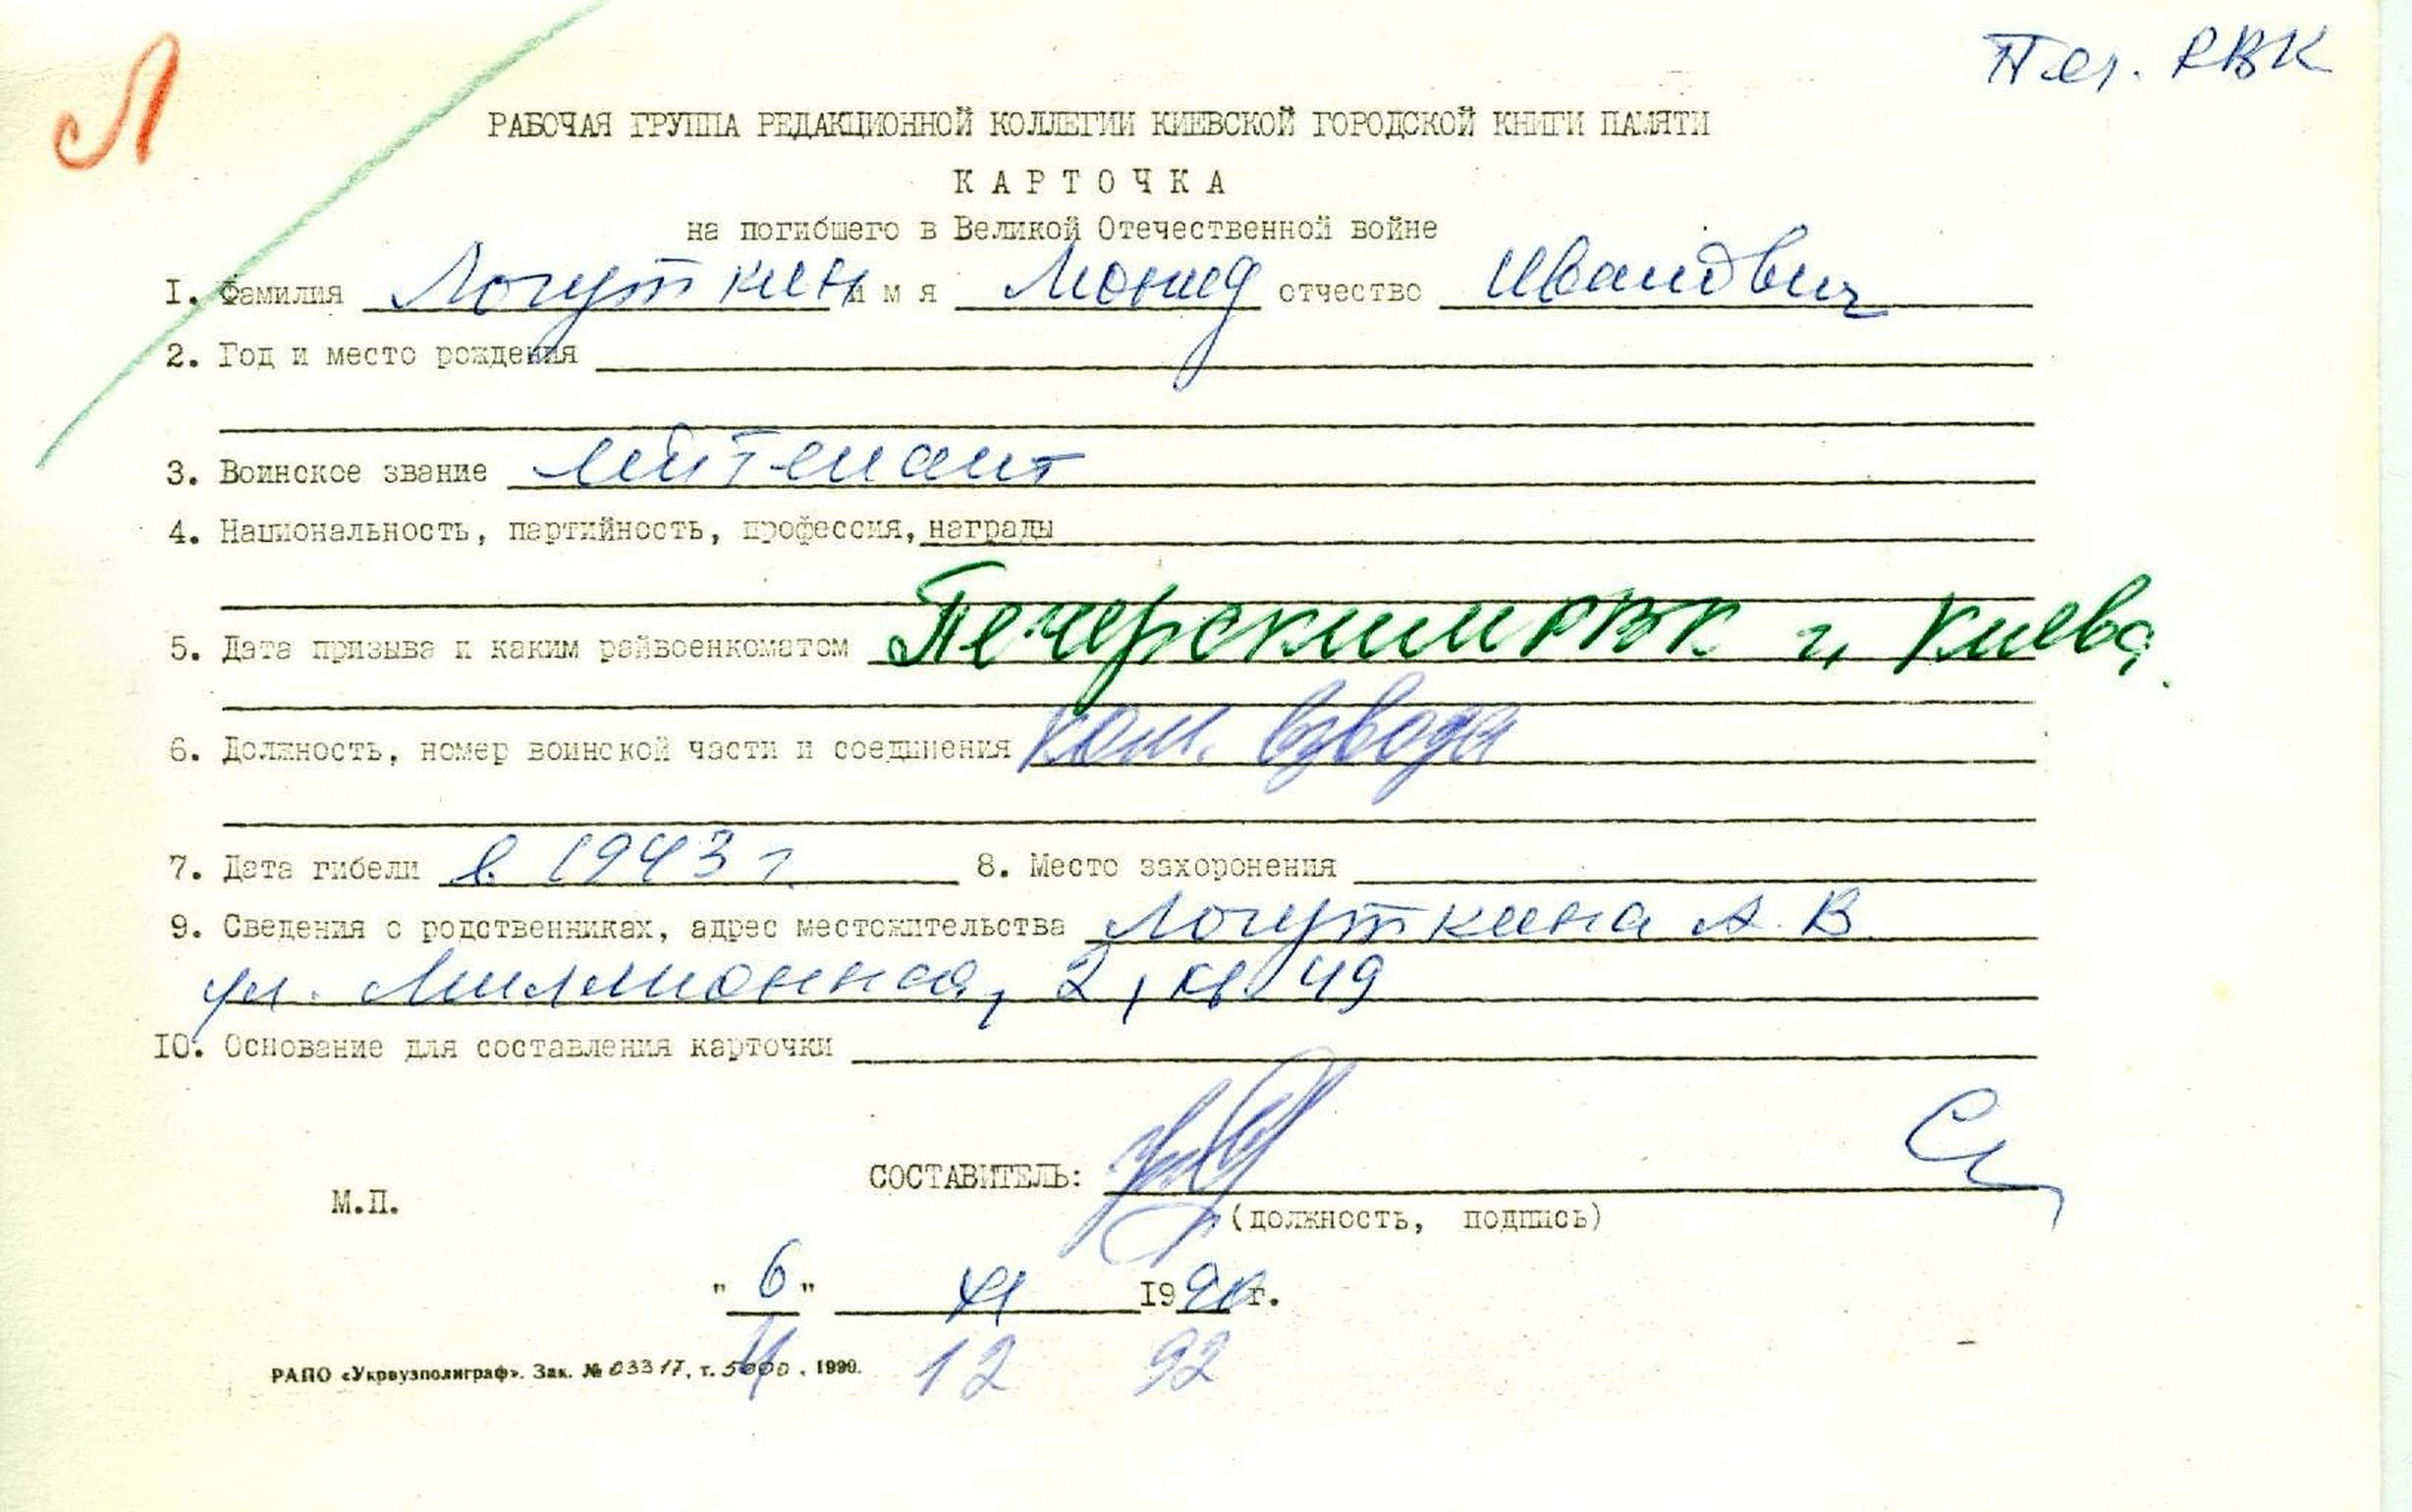 Л
Печ. РВК
РАБОЧАЯ ГРУППА РЕДАКЦИОННОЙ КОЛЛЕГИИ КИЕВСКОЙ ГОРОДСКОЙ КНИГИ ПАМЯТИ
КАРТОЧКА
на погибшего в Великой Отечественной войне
1. Фамилия Логуткин имя Леонид отчество Иванович
2. Год и место рождения
3. Воинское звание лейтенант
4. Национальность, партийность, профессия, награды
5. Дата призыва и каким райвоенкоматом Печерским РВК г. Киева.
6. Должность, номер воинской части и соединения ком. взвода
7. Дата гибели в 1943 г. 8. Место захоронения
9. Сведения о родственниках, адрес местожительства Логуткина А. В.
ул. Миллионная, 2, кв. 49
10. Основание для составления карточки
СОСТАВИТЕЛЬ:
М.П.
(должность, подпись)
"6" XI 1990 г.
12 92
РАПО «Укрвузполиграф». Зак. № 03317, т. 5000. 1990.